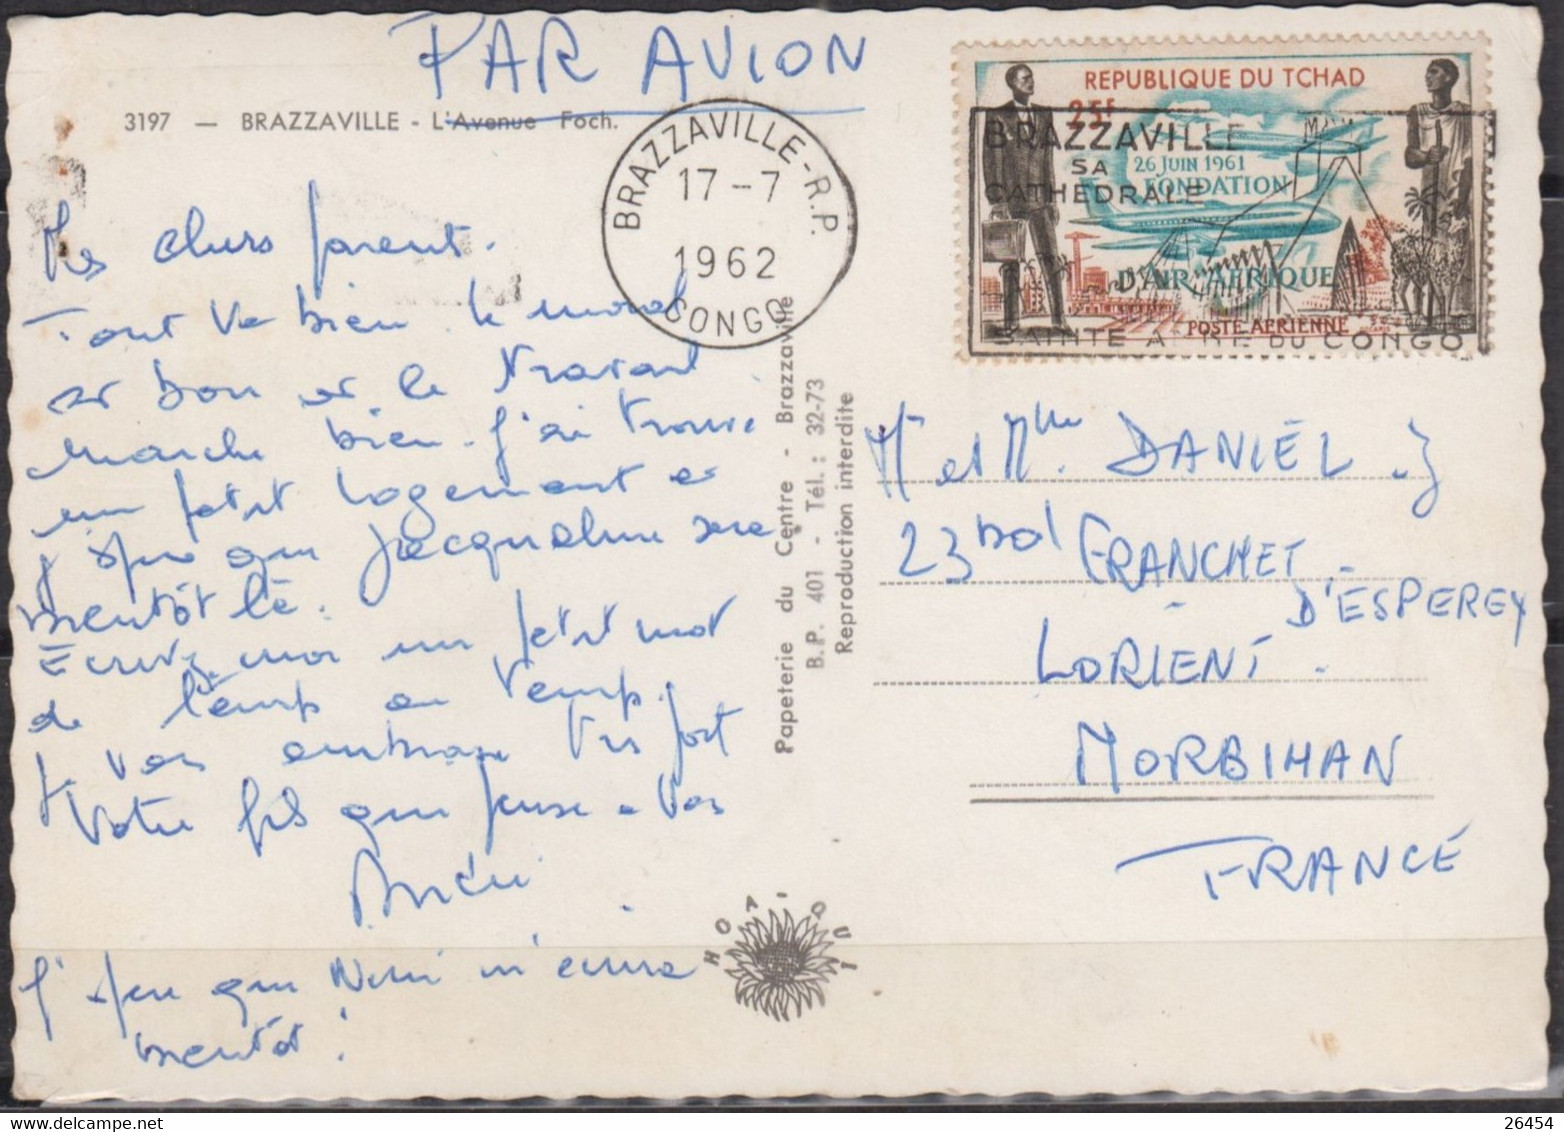 PAR AVION
3197 — BRAZZAVILLE - L'Avenue Foch.
BRAZZAVILLE-R.P.
17-7
1962
CONGO
REPUBLIQUE DU TCHAD
25F
26 JUIN 1961
FONDATION
D'AIR AFRIQUE
POSTE AÉRIENNE
BRAZZAVILLE
SA
CATHEDRALE
SAINTE ANNE DU CONGO
Mes chers parent.
Tout va bien. le moral
est bon et le travail
marche bien. J'ai trouvé
un petit logement et
j'espère que Jacqueline sera
bientôt là.
Ecrivez moi un petit mot
de temps en temps.
Je vous embrasse très fort
Votre fils qui pense a vous
J'espère que m'écrira
bientôt!
Papeterie du Centre - Brazzaville
B.P. 401 - Tél.: 32-73
Reproduction interdite
HOA-QUI
Mr et Mme DANIEL J
23 bd FRANCHET
D'ESPEREY
LORIENT.
MORBIHAN
FRANCE
26454